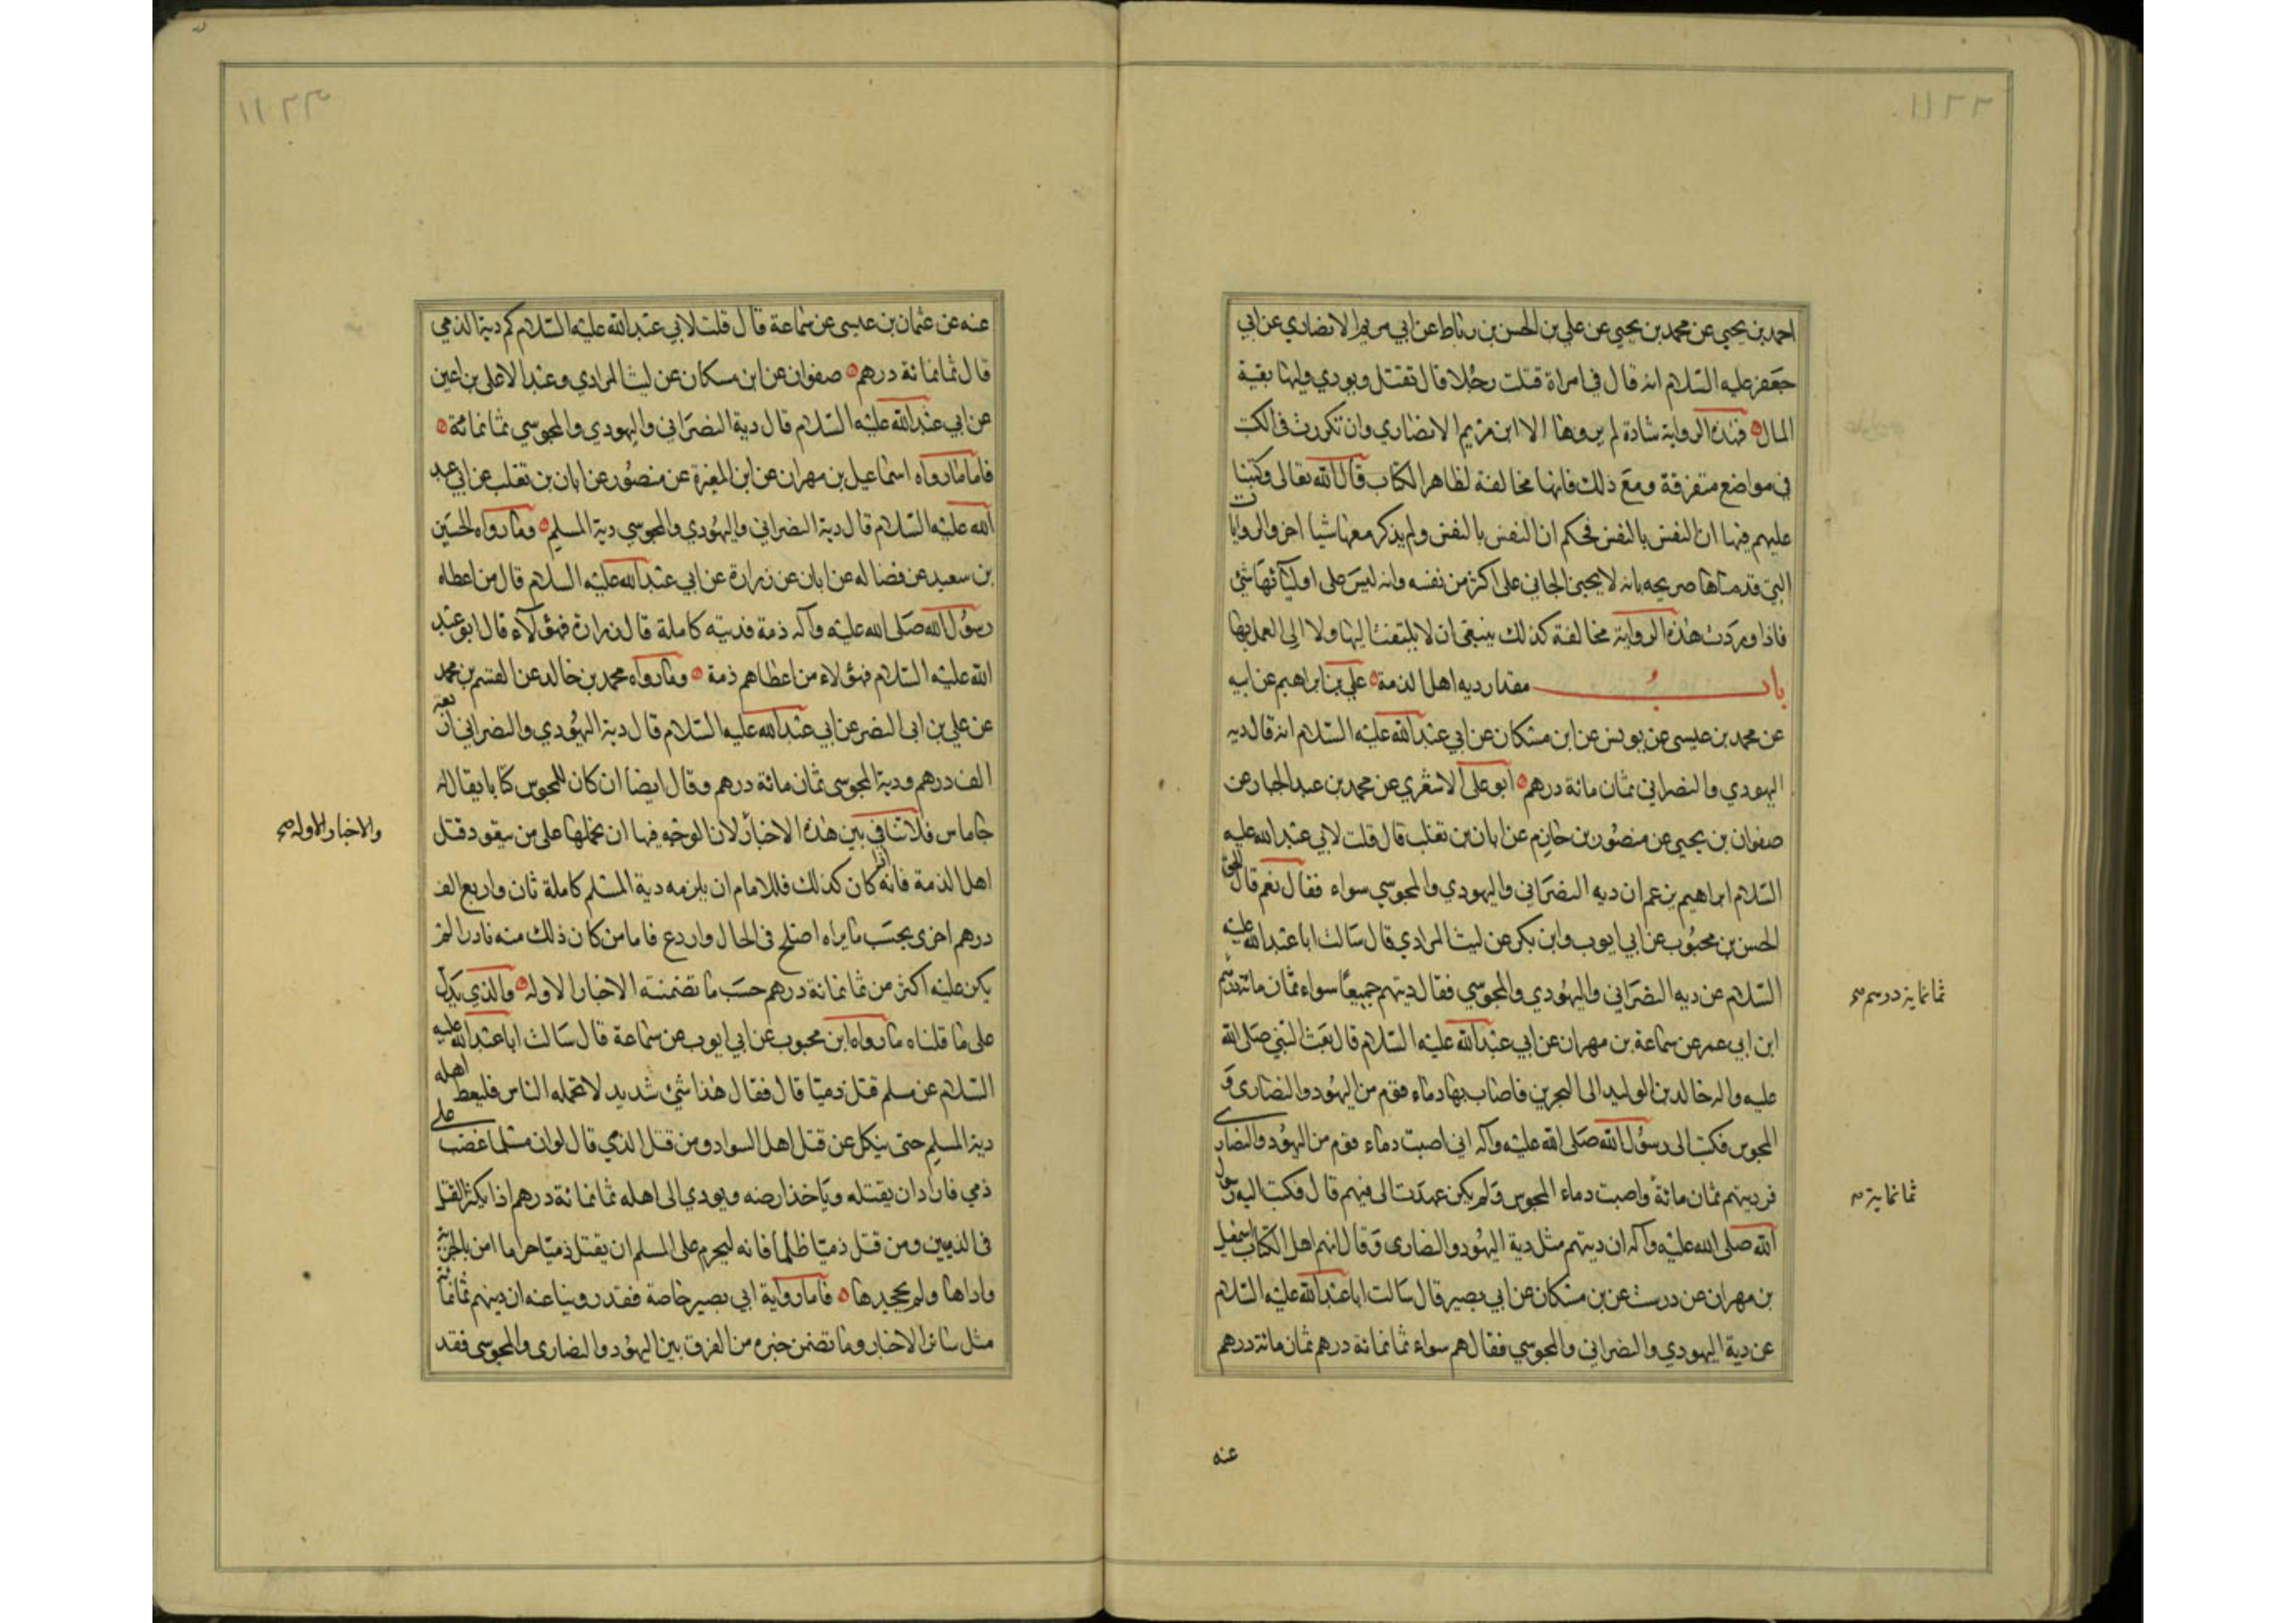 احمد بن يحيى عن محمد بن يحيى عن علي بن الحسن بن رباط عن ابي مريم الانصاري عن ابي
جعفر عليه السلام انه قال في امراة قتلت رجلا قال تقتل ويودي وليها بقية
المال فهذه الرواية شاذة لم يروها الا ابن مريم الانصاري وان تكررت في الكتب
في مواضع متفرقة ومع ذلك فانها مخالفة لظاهر الكتاب قال الله تعالى وكتبنا
عليهم فيها ان النفس بالنفس فحكم ان النفس بالنفس ولم يذكر معها شيا اخر والروايات
التي قدمناها صريحه بانه لا يجني الجاني على اكثر من نفسه وانه ليس على اوليائها شئ
فاذا وردت هذه الرواية مخالفة كذلك ينبغى ان لا يلتفت اليها ولا الى العمل بها
باب مقدار ديه اهل الذمة علي بن ابراهيم عن ابيه
عن محمد بن عيسى عن يونس عن ابن مسكان عن ابي عبد الله عليه السلام انه قال ديه
اليهودي والنصراني ثمان مائة درهم ابو على الاشعري عن محمد بن عبد الجبار عن
صفوان بن يحيى عن منصور بن حازم عن ابان بن تغلب قال قلت لابي عبد الله عليه
السلام ابراهيم يزعم ان ديه النصراني واليهودي والمجوسي سواء فقال نعم قال الحق
الحسن بن محبوب عن ابي ايوب وابن بكر عن ليث المرادي قال سالت ابا عبد الله عليه
السلام عن ديه النصراني واليهودي والمجوسي فقال ديتهم جميعا سواء ثمان مائة درهم
ثمانماية درهم صح
ابن ابي عمر عن سماعة بن مهران عن ابي عبد الله عليه السلام قال بعث النبي صلى الله
عليه واله خالد بن الوليد الى البحرين فاصاب بها دماء قوم من اليهود والنصارى و
المجوس فكتب الى رسول الله صلى الله عليه وآله اني اصبت دماء قوم من اليهود والنصارى
فرديتهم ثمان مائة واصبت دماء المجوس ولم يكن عهدت الى فيهم قال فكتب اليه رسول
ثمانماية
الله صلى الله عليه وآله ان ديتهم مثل دية اليهود والنصارى وقال انهم اهل الكتاب اسمعيل
بن مهران عن درست عن بن مسكان عن ابي بصير قال سالت ابا عبد الله عليه السلام
عن دية اليهودي والنصراني والمجوسي فقال هم سواء ثمانمائة درهم ثمان مائة درهم
عنه
عنه عن عثمان بن عيسى عن سماعة قال قلت لابي عبد الله عليه السلام كم دية الذمي
قال ثمانمائة درهم صفوان عن ابن مسكان عن ليث المرادي وعبد الاعلى بن اعين
عن ابي عبد الله عليه السلام قال دية النصراني واليهودي والمجوسي ثمانمائة
فاما ما رواه اسماعيل بن مهران عن ابن المغيرة عن منصور عن ابان بن تغلب عن ابي عبد
الله عليه السلام قال دية النصراني واليهودي والمجوسي دية المسلم وما رواه الحسين
بن سعيد عن فضاله عن ابان عن زرارة عن ابي عبد الله عليه السلام قال من اعطاه
رسول الله صلى الله عليه وآله ذمة فديته كاملة قال زرارة فهؤلاء قال ابو عبد
الله عليه السلام فهؤلاء من اعطاهم ذمة وما رواه محمد بن خالد عن القسم بن محمد
عن علي بن ابى النصر عن ابي عبد الله عليه السلام قال دية اليهودي والنصراني اربعة
الف درهم ودية المجوسي ثمان مائة درهم وقال ايضا ان كان للمجوس كتابا يقال له
جاماس فلا تنافي بين هذه الاخبار لان الوجه فيها ان نحملها على من يتعود قتل
والاخبار الاوله صح
اهل الذمة فانه اذا كان كذلك فللامام ان يلزمه دية المسلم كاملة ثان واربع الف
درهم اخرى بحسب ما يراه اصلح في الحال واردع فاما من كان ذلك منه نادرا لم
يكن عليه اكثر من ثمانمائة درهم حسب ما تضمنته الاخبار الاوله والذي يدل
على ما قلناه ما رواه ابن محبوب عن ابي ايوب عن سماعة قال سالت ابا عبد الله عليه
السلام عن مسلم قتل ذميا قال فقال هذا شئ شديد لا تحمله الناس فليعط اهله
دية المسلم حتى ينكل عن قتل اهل السواد ومن قتل الذمي قال لو ان مسلما غضب على
ذمي فاراد ان يقتله وياخذ ارضه ويودي الى اهله ثمانمائة درهم اذا يكثر القتل
في الذميين ومن قتل ذميا ظلما فانه ليحرم على المسلم ان يقتل ذميا حراما امن بالجزية
واداها ولم يجحدها فاما رواية ابي بصير خاصة فقد روينا عنه ان ديتهم ثمانمائة
مثل سائر الاخبار وما تضمن خبره من الفرق بين اليهود والنصارى والمجوسى فقد